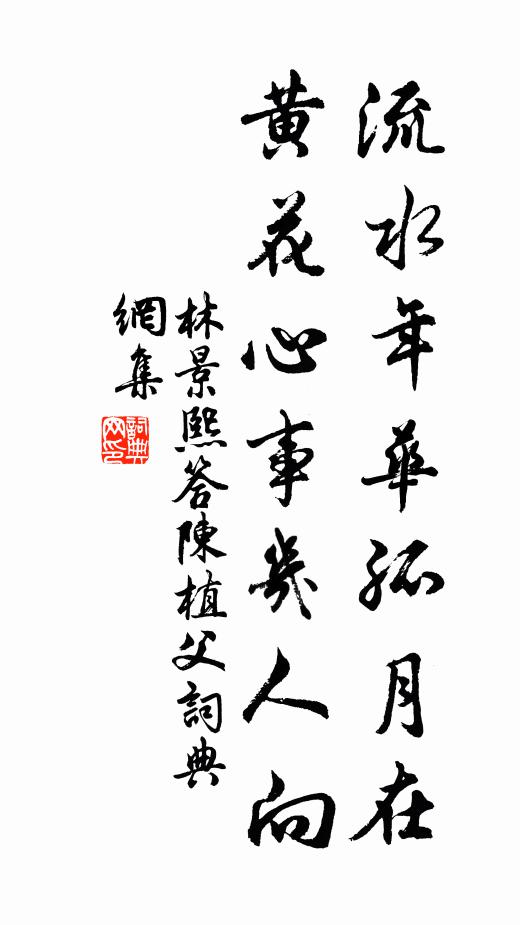 流水年華孤月在
黄花心事幾人向
林景熙答陳植父詞典
網集
詞典
网印